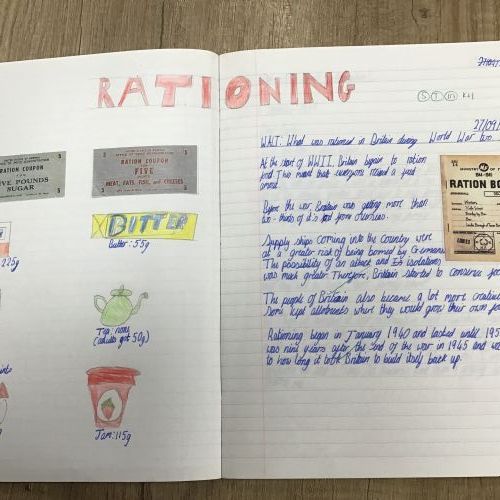 RATIONING
RATION COUPON
FIVE POUNDS
SUGAR
RATION COUPON
FIVE
MEAT, FATS, FISH, and CHEESES
BUTTER
Butter: 55g
225g
Tea: none
(adults got 50g)
Jam: 115g
27/09/
WALT: What was rationed in Britain during World War two
At the start of WWII, Britain began to ration
food. This meant that everyone received a fixed
amount.
Before the war, Britain was getting more than
two-thirds of it's food from overseas.
Supply ships coming into the country were
at a greater risk of being bombed by Germans.
The possibility of an attack and isolation
was much greater. Therefore, Britain started to conserve
The people of Britain also became a lot more
Some kept allotments where they would grow their own
Rationing began in January 1940 and lasted until 195
was nine years after the end of the war in 1945 and
to how long it took Britain to build itself back up.
MINISTRY OF
RATION BO